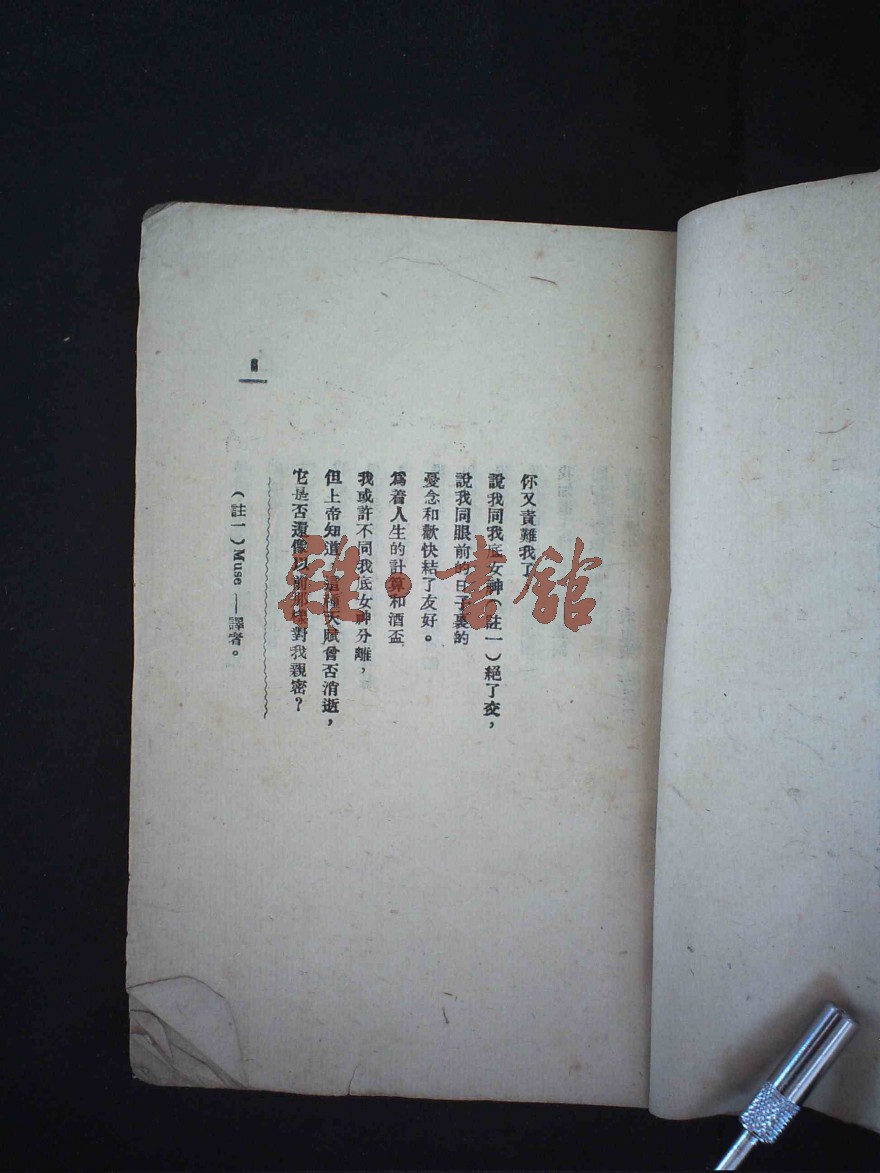 你又責難我了
說我同我底女神（註一）絕了交，
說我同眼前的日子裏的
憂念和歡快結了友好。
爲着人生的計算和酒盃
我或許不同我底女神分離，
但上帝知道，這種天賦曾否消逝，
它是否還像以前那樣對我親密？
（註一）Muse——譯者。
雜·書館